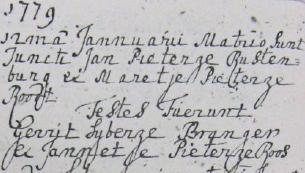 1779
12mâ Jannuarii Matrio Sunt
Juncti Jan Pieterze Rusten=
burg et Maretje Pieterze
Roost
Testes Fuerunt
Gerrit Syberze Branger
et Jannetje Pieterze Roos